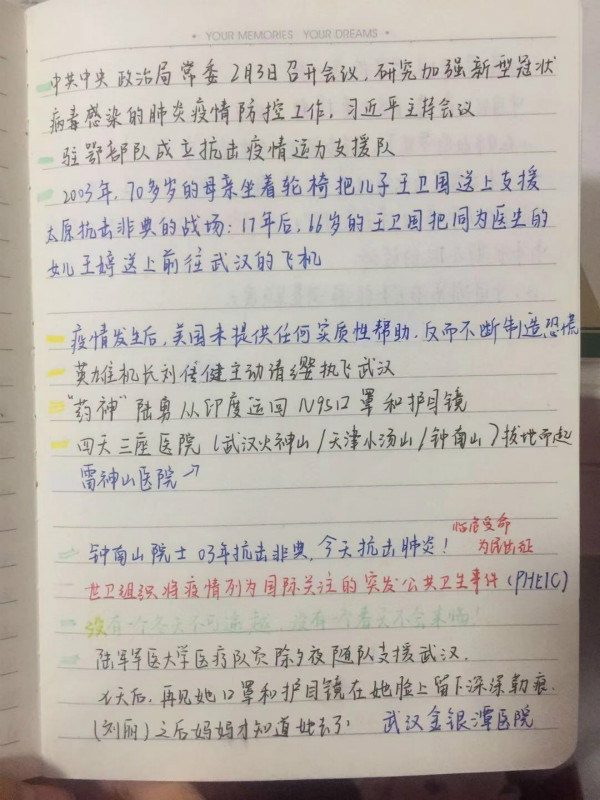 YOUR MEMORIES YOUR DREAMS
中共中央政治局常委2月3日召开会议,研究加强新型冠状
病毒感染的肺炎疫情防控工作,习近平主持会议
驻鄂部队成立抗击疫情运力支援队
2003年,70多岁的母亲坐着轮椅把儿子王卫国送上支援
太原抗击非典的战场;17年后,66岁的王卫国把同为医生的
女儿王婷送上前往武汉的飞机
疫情发生后,美国未提供任何实质性帮助,反而不断制造恐慌
英雄机长刘传健主动请缨执飞武汉
"药神"陆勇从印度运回N95口罩和护目镜
四天三座医院(武汉火神山/天津小汤山/钟南山)拔地而起
雷神山医院↗
临危受命
钟南山院士 03年抗击非典,今天抗击肺炎!
为民出征
世卫组织将疫情列为国际关注的突发公共卫生事件(PHEIC)
没有一个冬天不可逾越,没有一个春天不会来临!
陆军军医大学医疗队员除夕夜随队支援武汉,
天后,再见她口罩和护目镜在她脸上留下深深勒痕.
(刘丽)之后妈妈才知道她去了: 武汉金银潭医院